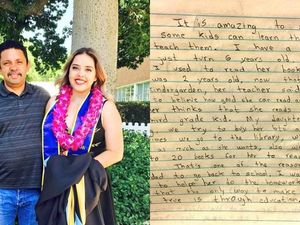 It is amazing to
some kids can learn th
teach them. I have a
just turn 6 years old.
I used to read her book
was 2 years old, now
kindergarden, her teacher said
to believe how good she can read
I thinks she read
third grade kid. My daught
we try to buy her bts
ives to the library,
as much as she wants, also w
to 20 books for her to read
That's one of the reason
dad to go back to school. I w
to help her to the homework
that the only way to make
true is through educatio